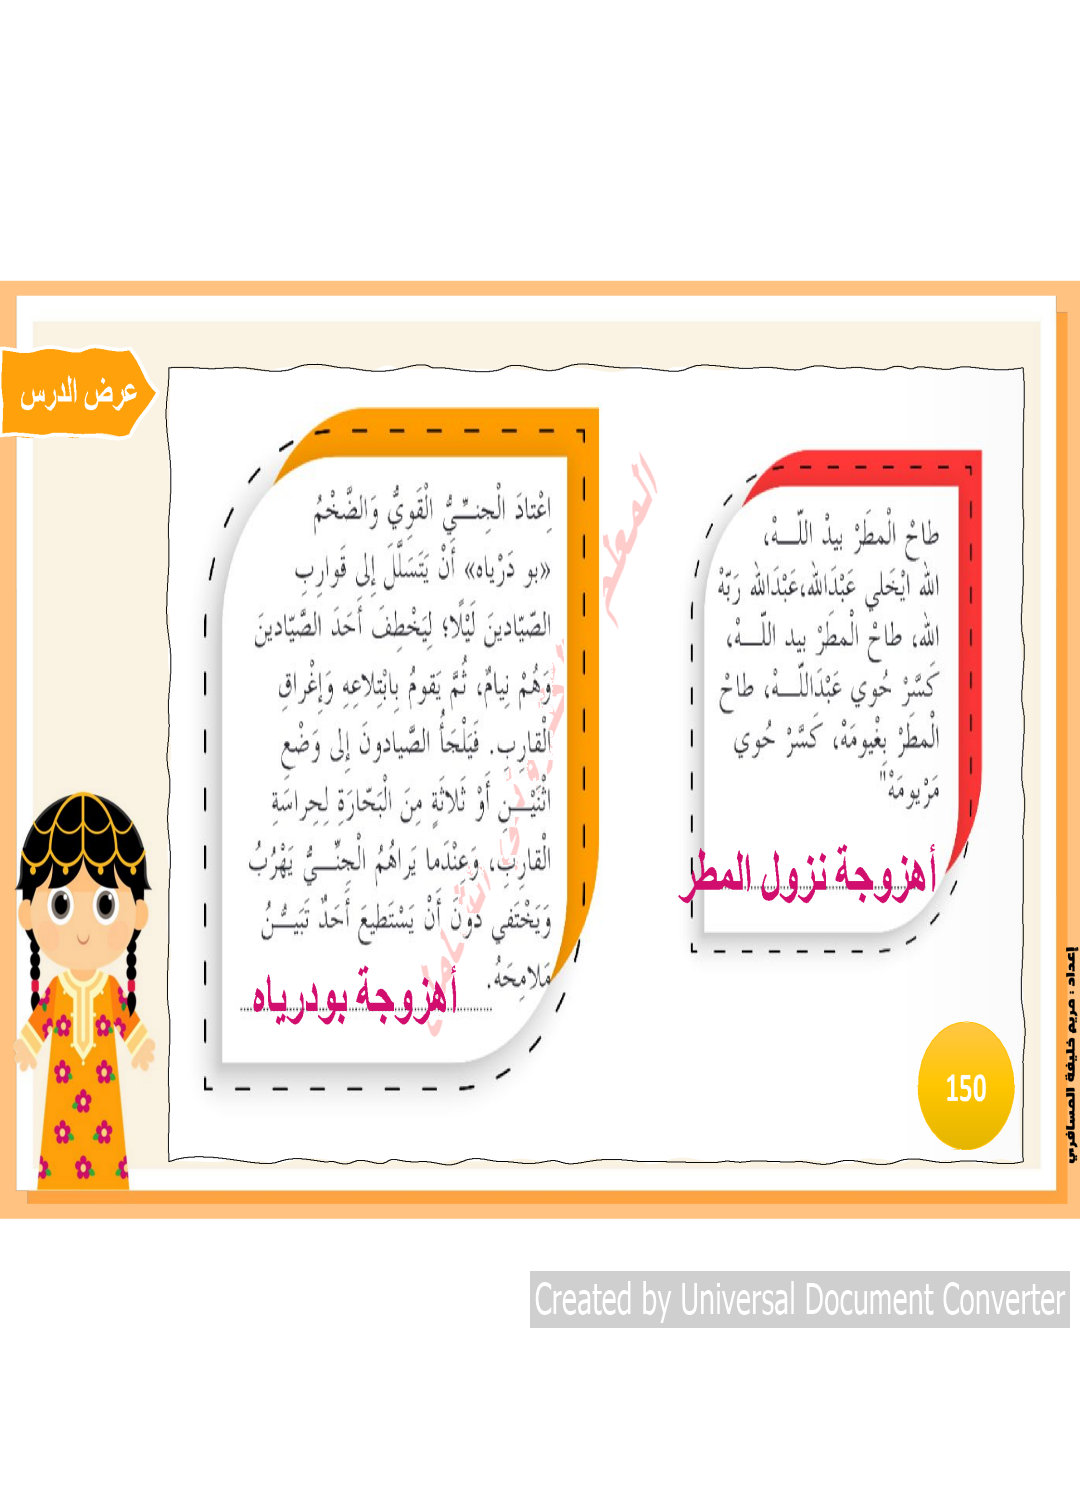 عرض الدرس
طاحْ الْمطَرْ بيدْ اللّـــهْ،
الله ايْخَلي عَبْدَالله،عَبْدَالله رَبّهْ
الله، طاحْ الْمطَرْ بيد اللّـــهْ،
كَسَّرْ حُوي عَبْدَاللّـــهْ، طاحْ
الْمطَرْ بِغْيومَهْ، كَسَّرْ حُوي
مَرْيومَهْ"
أهزوجة نزول المطر
اِعْتادَ الْجِنـــِّيُّ الْقَوِيُّ وَالضَّخْمُ
«بو دَرْياه» أَنْ يَتَسَلَّلَ إِلى قَوارِبِ
الصّيّادينَ لَيْلًا؛ لِيَخْطِفَ أَحَدَ الصَّيّادينَ
وَهُمْ نِيامٌ، ثُمَّ يَقومُ بِابْتِلاعِهِ وَإِغْراقِ
الْقارِبِ. فَيَلْجَأُ الصَّيادونَ إِلى وَضْعِ
اثْنَيْـــنِ أَوْ ثَلاثَةٍ مِنَ الْبَحّارَةِ لِحِراسَةِ
الْقارِبِ، وَعِنْدَما يَراهُمُ الْجِنّـــِيُّ يَهْرُبُ
وَيَخْتَفي دونَ أَنْ يَسْتَطيعَ أَحَدٌ تَبَيـــُّنَ
مَلامِحَهُ.
أهزوجة بودرياه
150
إعداد : مريم خليفة المسافري
المعلم
Created by Universal Document Converter